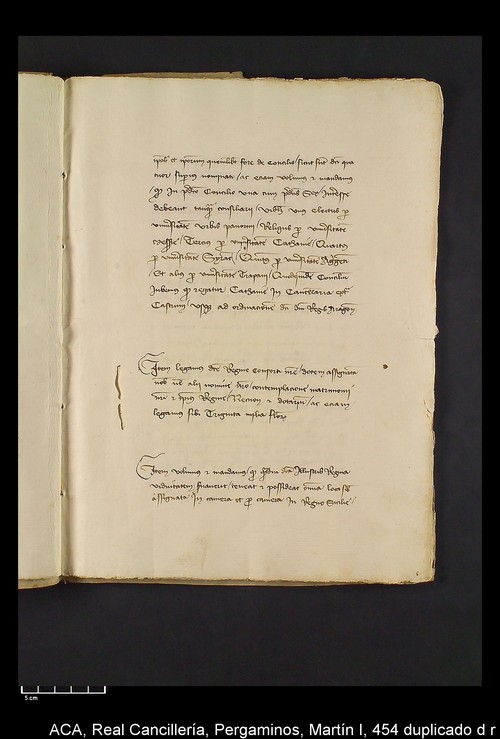 ipsos et ipsorum quemlibet fore de Concilio sicut sunt dicti qua
tuor superius nominati / ac eciam volumus et mandamus
quod in Concilio una cum Sex
debeant tanquam consiliarii / unus electus pro
universitate urbis panormi / Reliquus pro universitate
Tercius pro universitate Cathanie / Quartus
pro universitate Quintus pro universitate
Et alius pro universitate Trapani / Quodquidem Concilium
Iubemus quod regatur Cathanie in
Castrum usque ad ordinacionem domini Regis Aragonum
Item legamus dicte Regine Consorti nostre / dotem assignatam
nobis vel alii nomine contemplacione matrimonii
nostri et ipsius Regine / Necnon et dotarium / ac eciam
legamus sibi Triginta milia florenorum
Item volumus et mandamus / quod dicta Illustris Regina
viduitatem / teneat et possideat omnia loca sibi
assignata / in camera et pro camera in Regno Sicilie /
5 cm
ACA, Real Cancillería, Pergaminos, Martín I, 454 duplicado d r